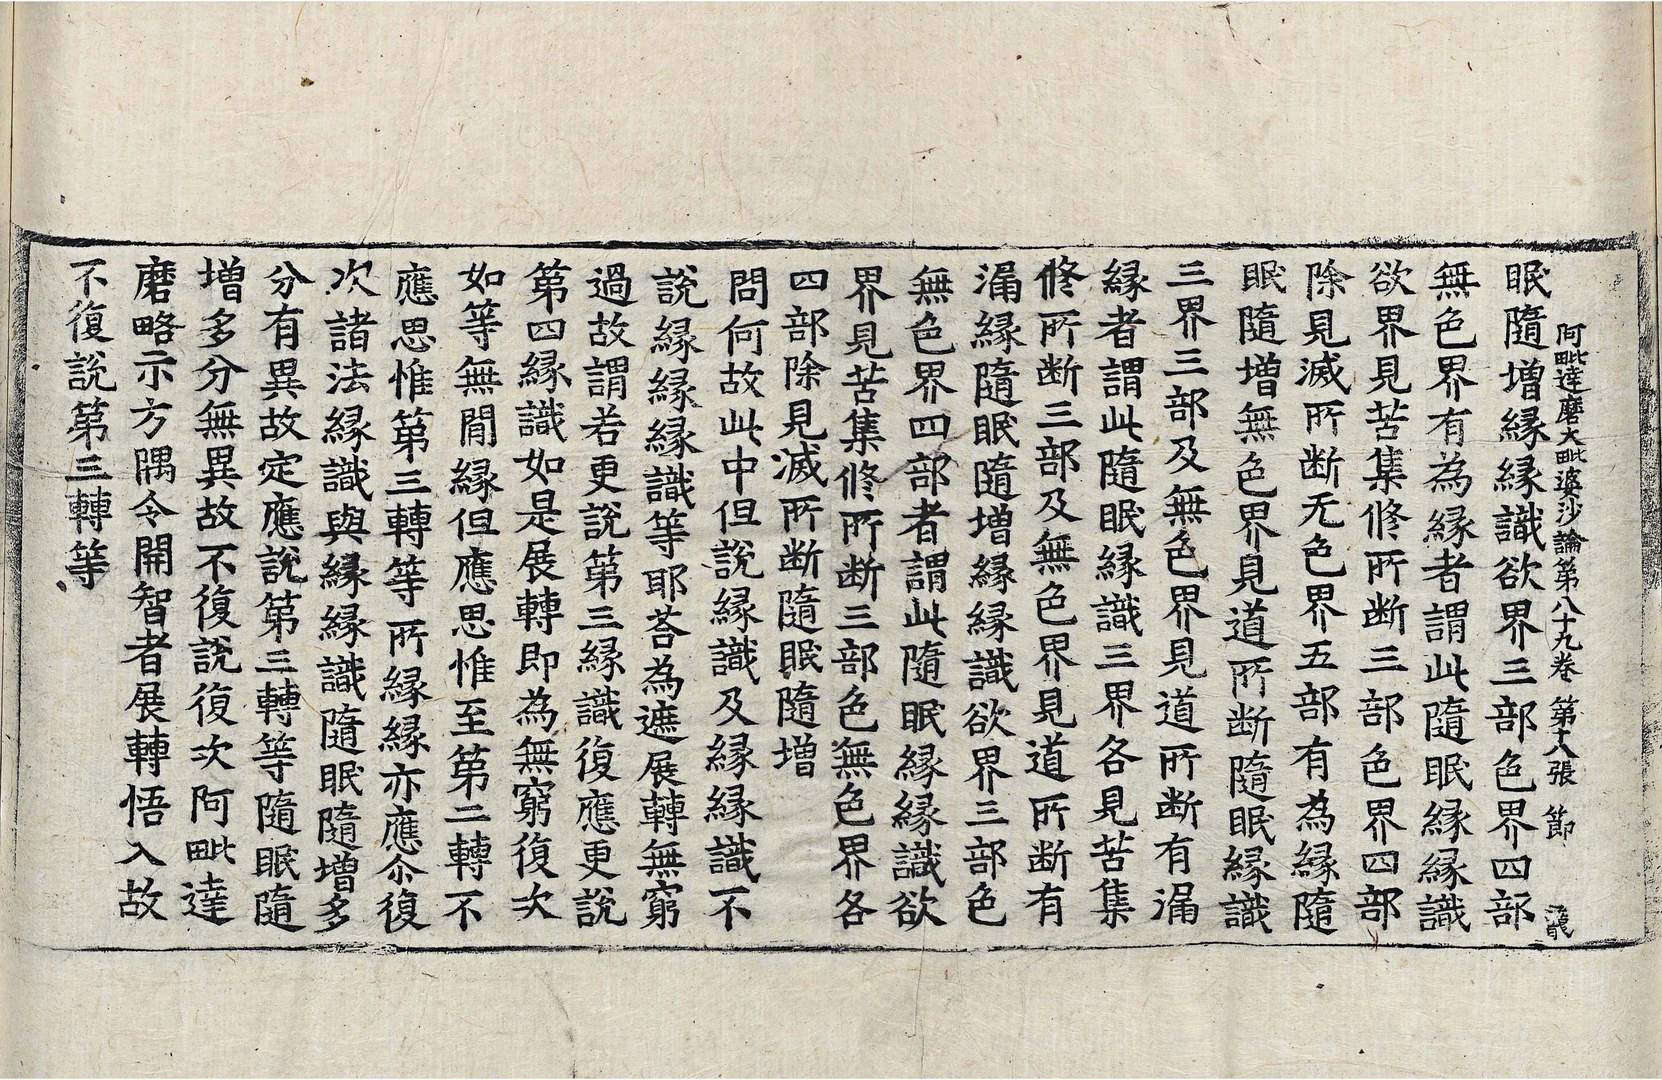 阿毗達磨大毗婆沙論第八十九卷 第十八張 節
眠隨增緣緣識欲界三部色界四部
無色界有為緣者謂此隨眠緣緣識
欲界見苦集修所断三部色界四部
除見滅所断无色界五部有為緣隨
眠隨增無色界見道所断隨眠緣識
三界三部及無色界見道所断有漏
緣者謂此隨眠緣識三界各見苦集
修所断三部及無色界見道所断有
漏緣隨眠隨增緣緣識欲界三部色
無色界四部者謂此隨眠緣緣識欲
界見苦集修所断三部色無色界各
四部除見滅所断隨眠隨增
問何故此中但說緣識及緣緣識不
說緣緣緣緣識等耶荅為遮展轉無窮
過故謂若更說第三緣識復應更說
第四緣識如是展轉即為無窮復次
如等無間緣但應思惟至第二轉不
應思惟第三轉等所緣緣亦應尒復
次諸法緣識與緣緣識隨眠隨增多
分有異故定應說第三轉等隨眠隨
增多分無異故不復說復次阿毗達
磨略示方隅令開智者展轉悟入故
不復說第三轉等